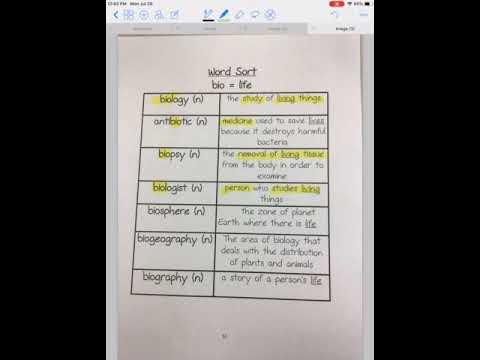 Word Sort
bio = life
biology (n)
the study of living things
antibiotic (n)
medicine used to save lives
because it destroys harmful
bacteria
biopsy (n)
the removal of living tissue
from the body in order to
examine
biologist (n)
person who studies living
things
biosphere (n)
the zone of planet
Earth where there is life
biogeography (n)
The area of biology that
deals with the distribution
of plants and animals
biography (n)
a story of a person's life